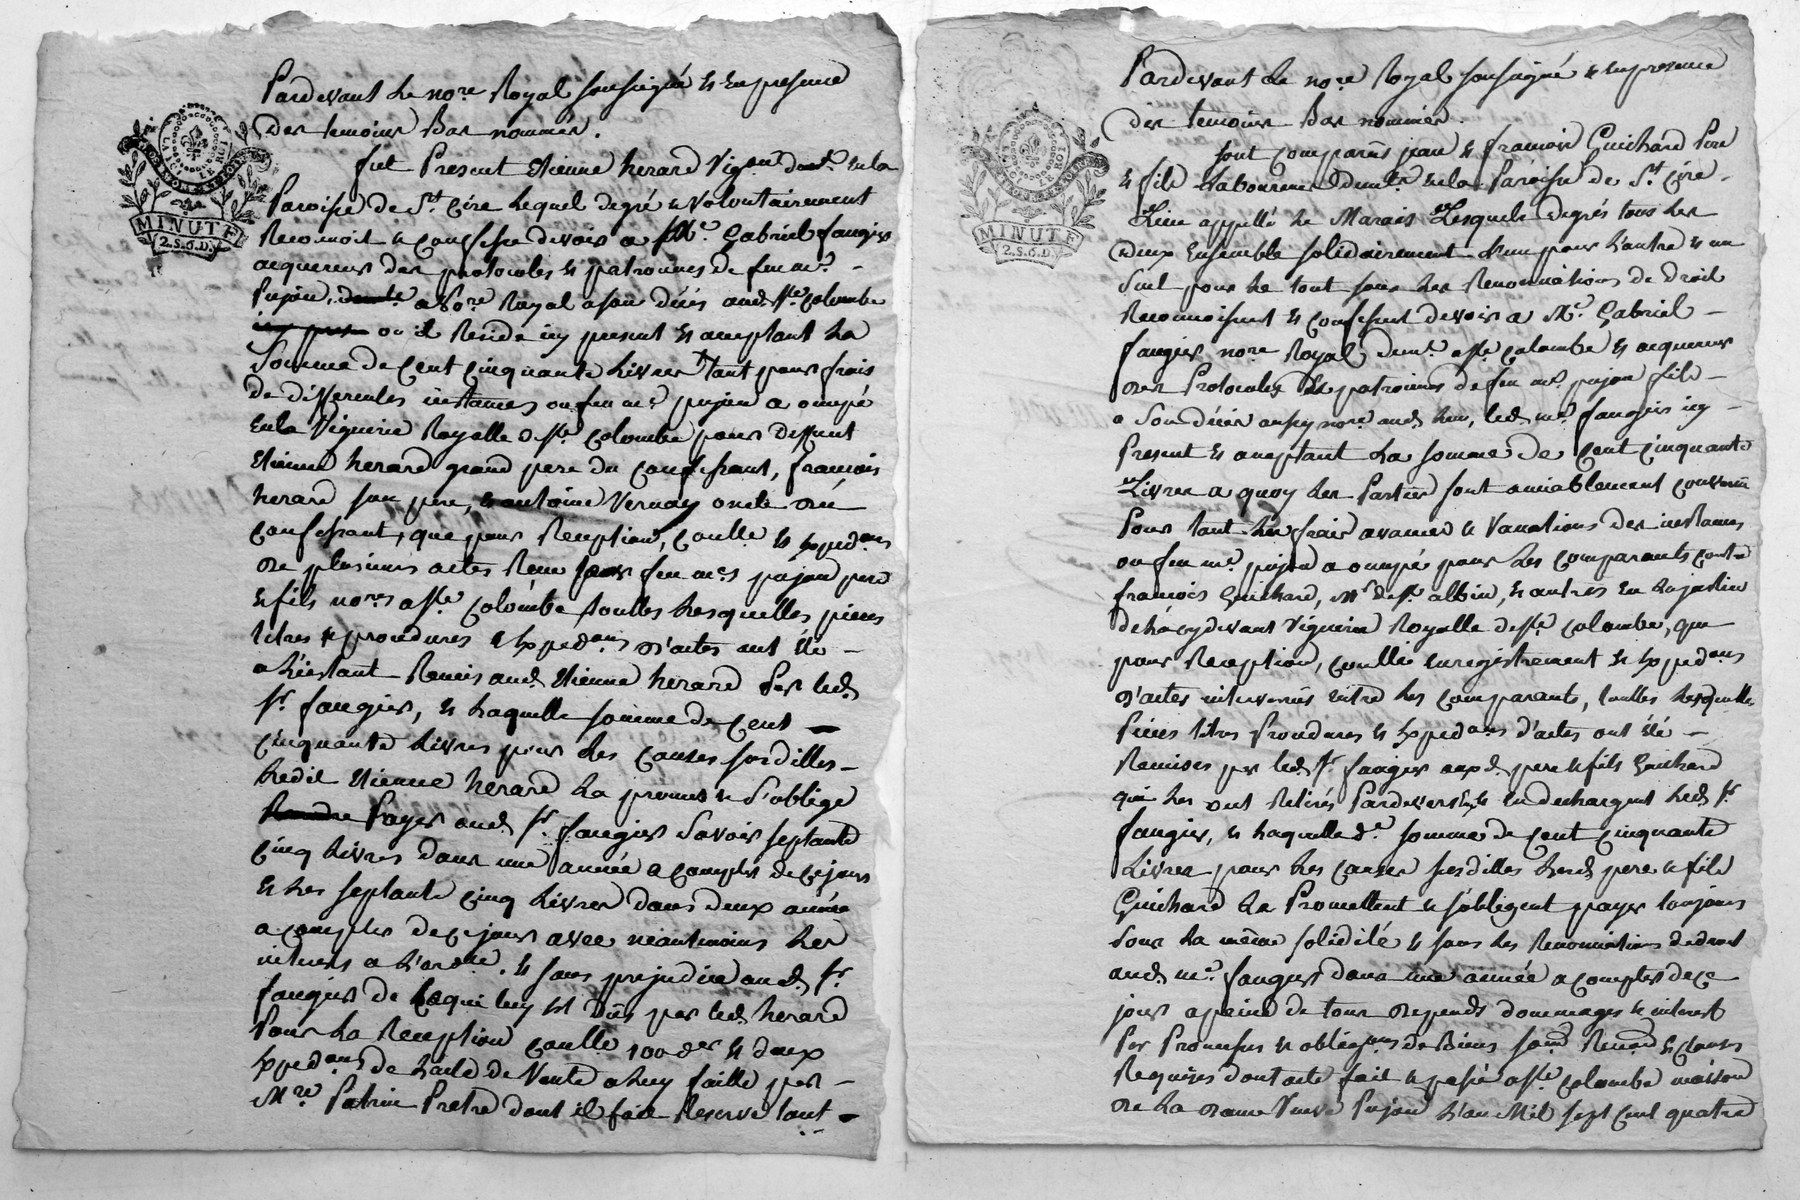 Pardevant le nore Royal soussigné & en presence
des temoins Bas nommés.
fut Present Etienne herard Vigon demt en la
Paroisse de St Cire lequel de gré & volontairement
Reconoit & confesse devoir a Me Gabriel faugier
acquereur des protocoles & patrounes de feu me
Pujon, nore Royal a son décés aud Ste Colombe
ou il Reside icy present & acceptant la
Somme de Cent cinquante Livres tant pour frais
de differentes instances ou feu me pujon a occupé
en la Viguerie Royalle de Ste Colombe pour deffunt
Etienne herard grand pere du confessant, francois
herard son pere, & antoine Vernay oncle du
confessant, que pour Reception, Coulle & Expedons
de plusieurs actes Reçu par feu mes pujon pere
& fils nores a Ste Colombe touttes lesquelles pieces
titres & procedures & Expedons d'actes ont été
a l'instant Remis aud Etienne herard Par led
Sr faugier, & laquelle somme de Cent
Cinquante Livres pour les causes susdittes
Ledit Etienne herard la promet & s'oblige
Payer aud Sr faugier Savoir septante
Cinq Livres dans une année a compter de ce jour
& les septante Cinq Livres dans deux année
a compter de ce jour avec neantmoins les
interets a l'ordre, & sans prejudice aud Sr
faugier de ce qui luy est Dûs par led herard
Pour la Reception Coulle 100 der & deux
Expedons de l'acte de Vente a luy faitte par
Mre Patrin Pretre dont il fait Reserve tant
MINUTE
2.S.6.D.
Pardevant le nore Royal soussigné & en presence
des temoins Bas nommés.
sont comparûs jean & francois Guichard Pere
& fils Laboureurs demts en la Paroisse de St Cire
Lieu appellé le Marais Lesquels de grés tous les
deux Ensemble solidairement l'un pour l'autre & un
Seul pour le tout sous les Renonciations de droit
Reconnoissent & confessent devoir a Me Gabriel
faugier nore Royal demt a Ste Colombe & acquereur
des Protocoles & patrouns de feu me pujon fils
a Son décés aussy nore aud lieu, led me faugier icy
Present & acceptant La somme de Cent Cinquante
Livres a quoy les Parties sont amiablement convenu
Pour tant les frais avances & Vacations des instances
ou feu me pujon a occupé pour les Comparants contre
francois Guichard, Mr de St albin, & autres en la justice
de la cydevant Viguerie Royalle de Ste Colombe, que
pour Reception, Coulle enregistrement & Expedons
d'actes intervenus entre les comparants, touttes lesquelles
Pieces titres Procedures & Expedons d'actes ont été
Remises par led Sr faugier auxd pere & fils Guichard
qui les ont Retirés Pardevers eux & en dechargent led Sr
faugier, & laquelle de somme de Cent Cinquante
Livres pour les Causes susdittes Lesd pere & fils
Guichard La Promettent & s'obligent payer toujours
Sous la même solidité & sous les Renonciations de droit
aud me faugier dans une année a compter de ce
jour a peine de tous depends dommages & interest
Par Promesses & obligons de Biens soumd Renond & clauses
Requises dont acte fait & passé a Ste Colombe maison
de la dame Veuve Pujon L'an Mil sept Cent quatre
MINUTE
2.S.6.D.